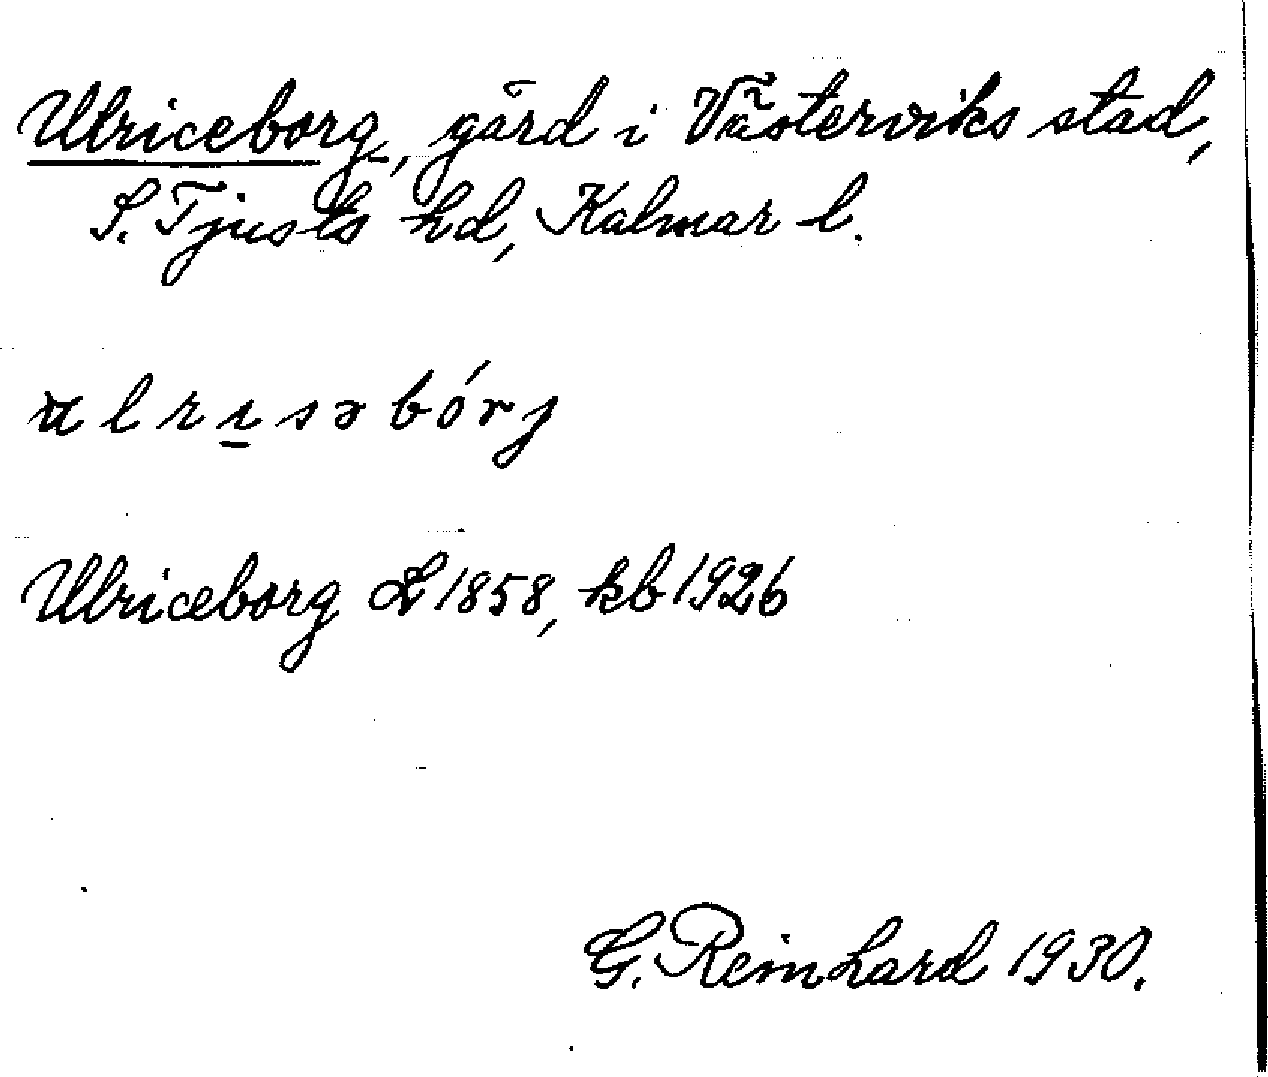 Ulriceborg, gård i Västerviks stad,
S. Tjusts hd, Kalmar l.
ulrısəbórj
Ulriceborg L 1858, kb 1926
G. Reinhard 1930.